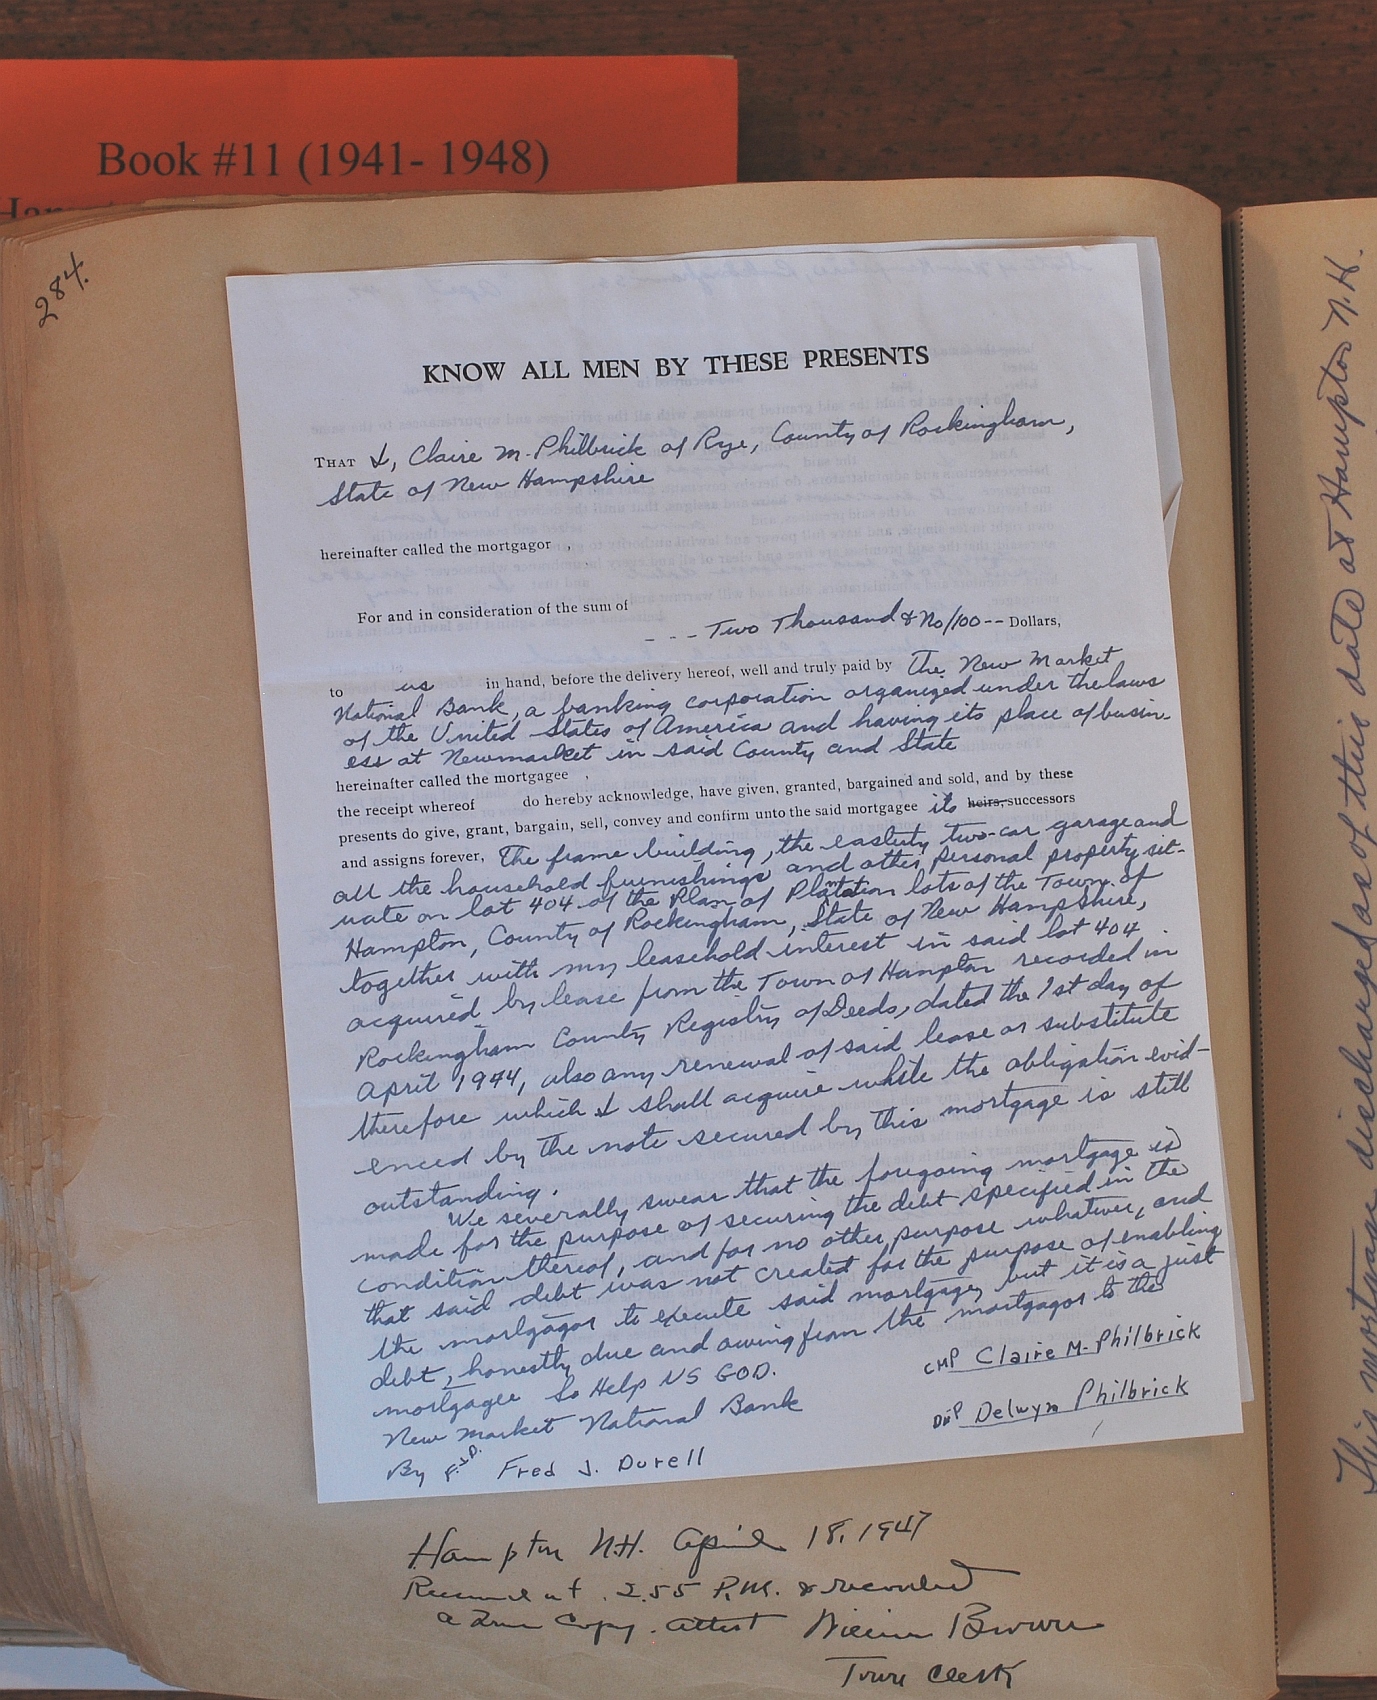 Book #11 (1941- 1948)
284.
KNOW ALL MEN BY THESE PRESENTS
THAT I, Claire M. Philbrick of Rye, County of Rockingham,
State of New Hampshire
hereinafter called the mortgagor ,
For and in consideration of the sum of
- - - Two Thousand & No/100 -- Dollars,
to us in hand, before the delivery hereof, well and truly paid by The New Market
National Bank, a banking corporation organized under the laws
of the United States of America and having its place of busin-
ess at Newmarket in said County and State
hereinafter called the mortgagee ,
the receipt whereof do hereby acknowledge, have given, granted, bargained and sold, and by these
presents do give, grant, bargain, sell, convey and confirm unto the said mortgagee its heirs, successors
and assigns forever, The frame building, the easterly two-car garage and
all the household furnishings and other personal property sit-
uate on lot 404 of the Plan of Plantation lots of the Town of
Hampton, County of Rockingham, State of New Hampshire,
together with my leasehold interest in said lot 404
acquired by lease from the Town of Hampton recorded in
Rockingham County Registry of Deeds, dated the 1st day of
April 1944, also any renewal of said lease or substitute
therefore which I shall acquire while the obligation evid-
enced by the note secured by this mortgage is still
outstanding.
We severally swear that the foregoing mortgage is
made for the purpose of securing the debt specified in the
condition thereof, and for no other purpose whatever, and
that said debt was not created for the purpose of enabling
the mortgagor to execute said mortgage, but it is a just
debt, honestly due and owing from the mortgagor to the
mortgagee So Help US GOD.
CMP Claire M. Philbrick
New Market National Bank
DMP Delwyn Philbrick
By F.J.D. Fred J. Durell
Hampton N.H. April 18, 1947
Received at 2.55 P.M. & recorded
a True Copy. attest William Brown
Town Clerk
This mortgage discharged as of this date at Hampton N.H.